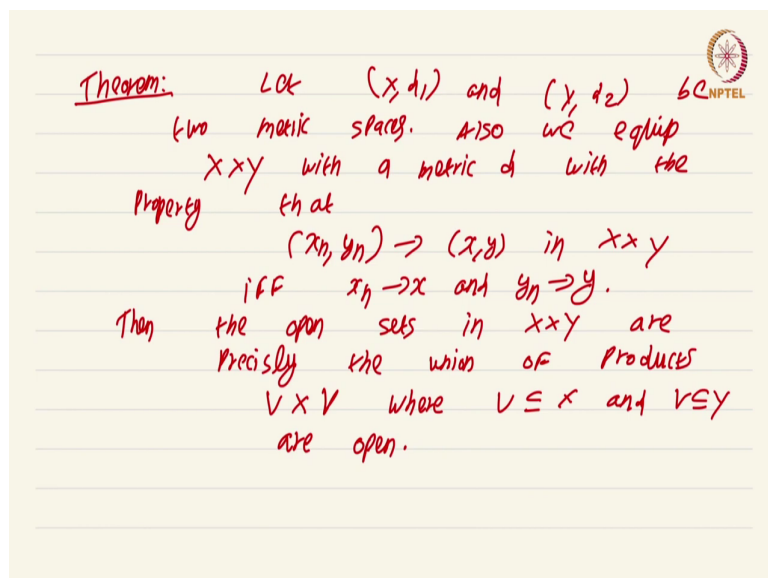 Theorem: Let (X, d₁) and (Y, d₂) be
NPTEL
two metric spaces. Also we equip
X×Y with a metric d with the
Property that
(xₙ, yₙ) → (x,y) in X×Y
iff xₙ → x and yₙ → y.
Then the open sets in X×Y are
Precisly the union of Products
U×V where U ⊆ X and V⊆Y
are open.